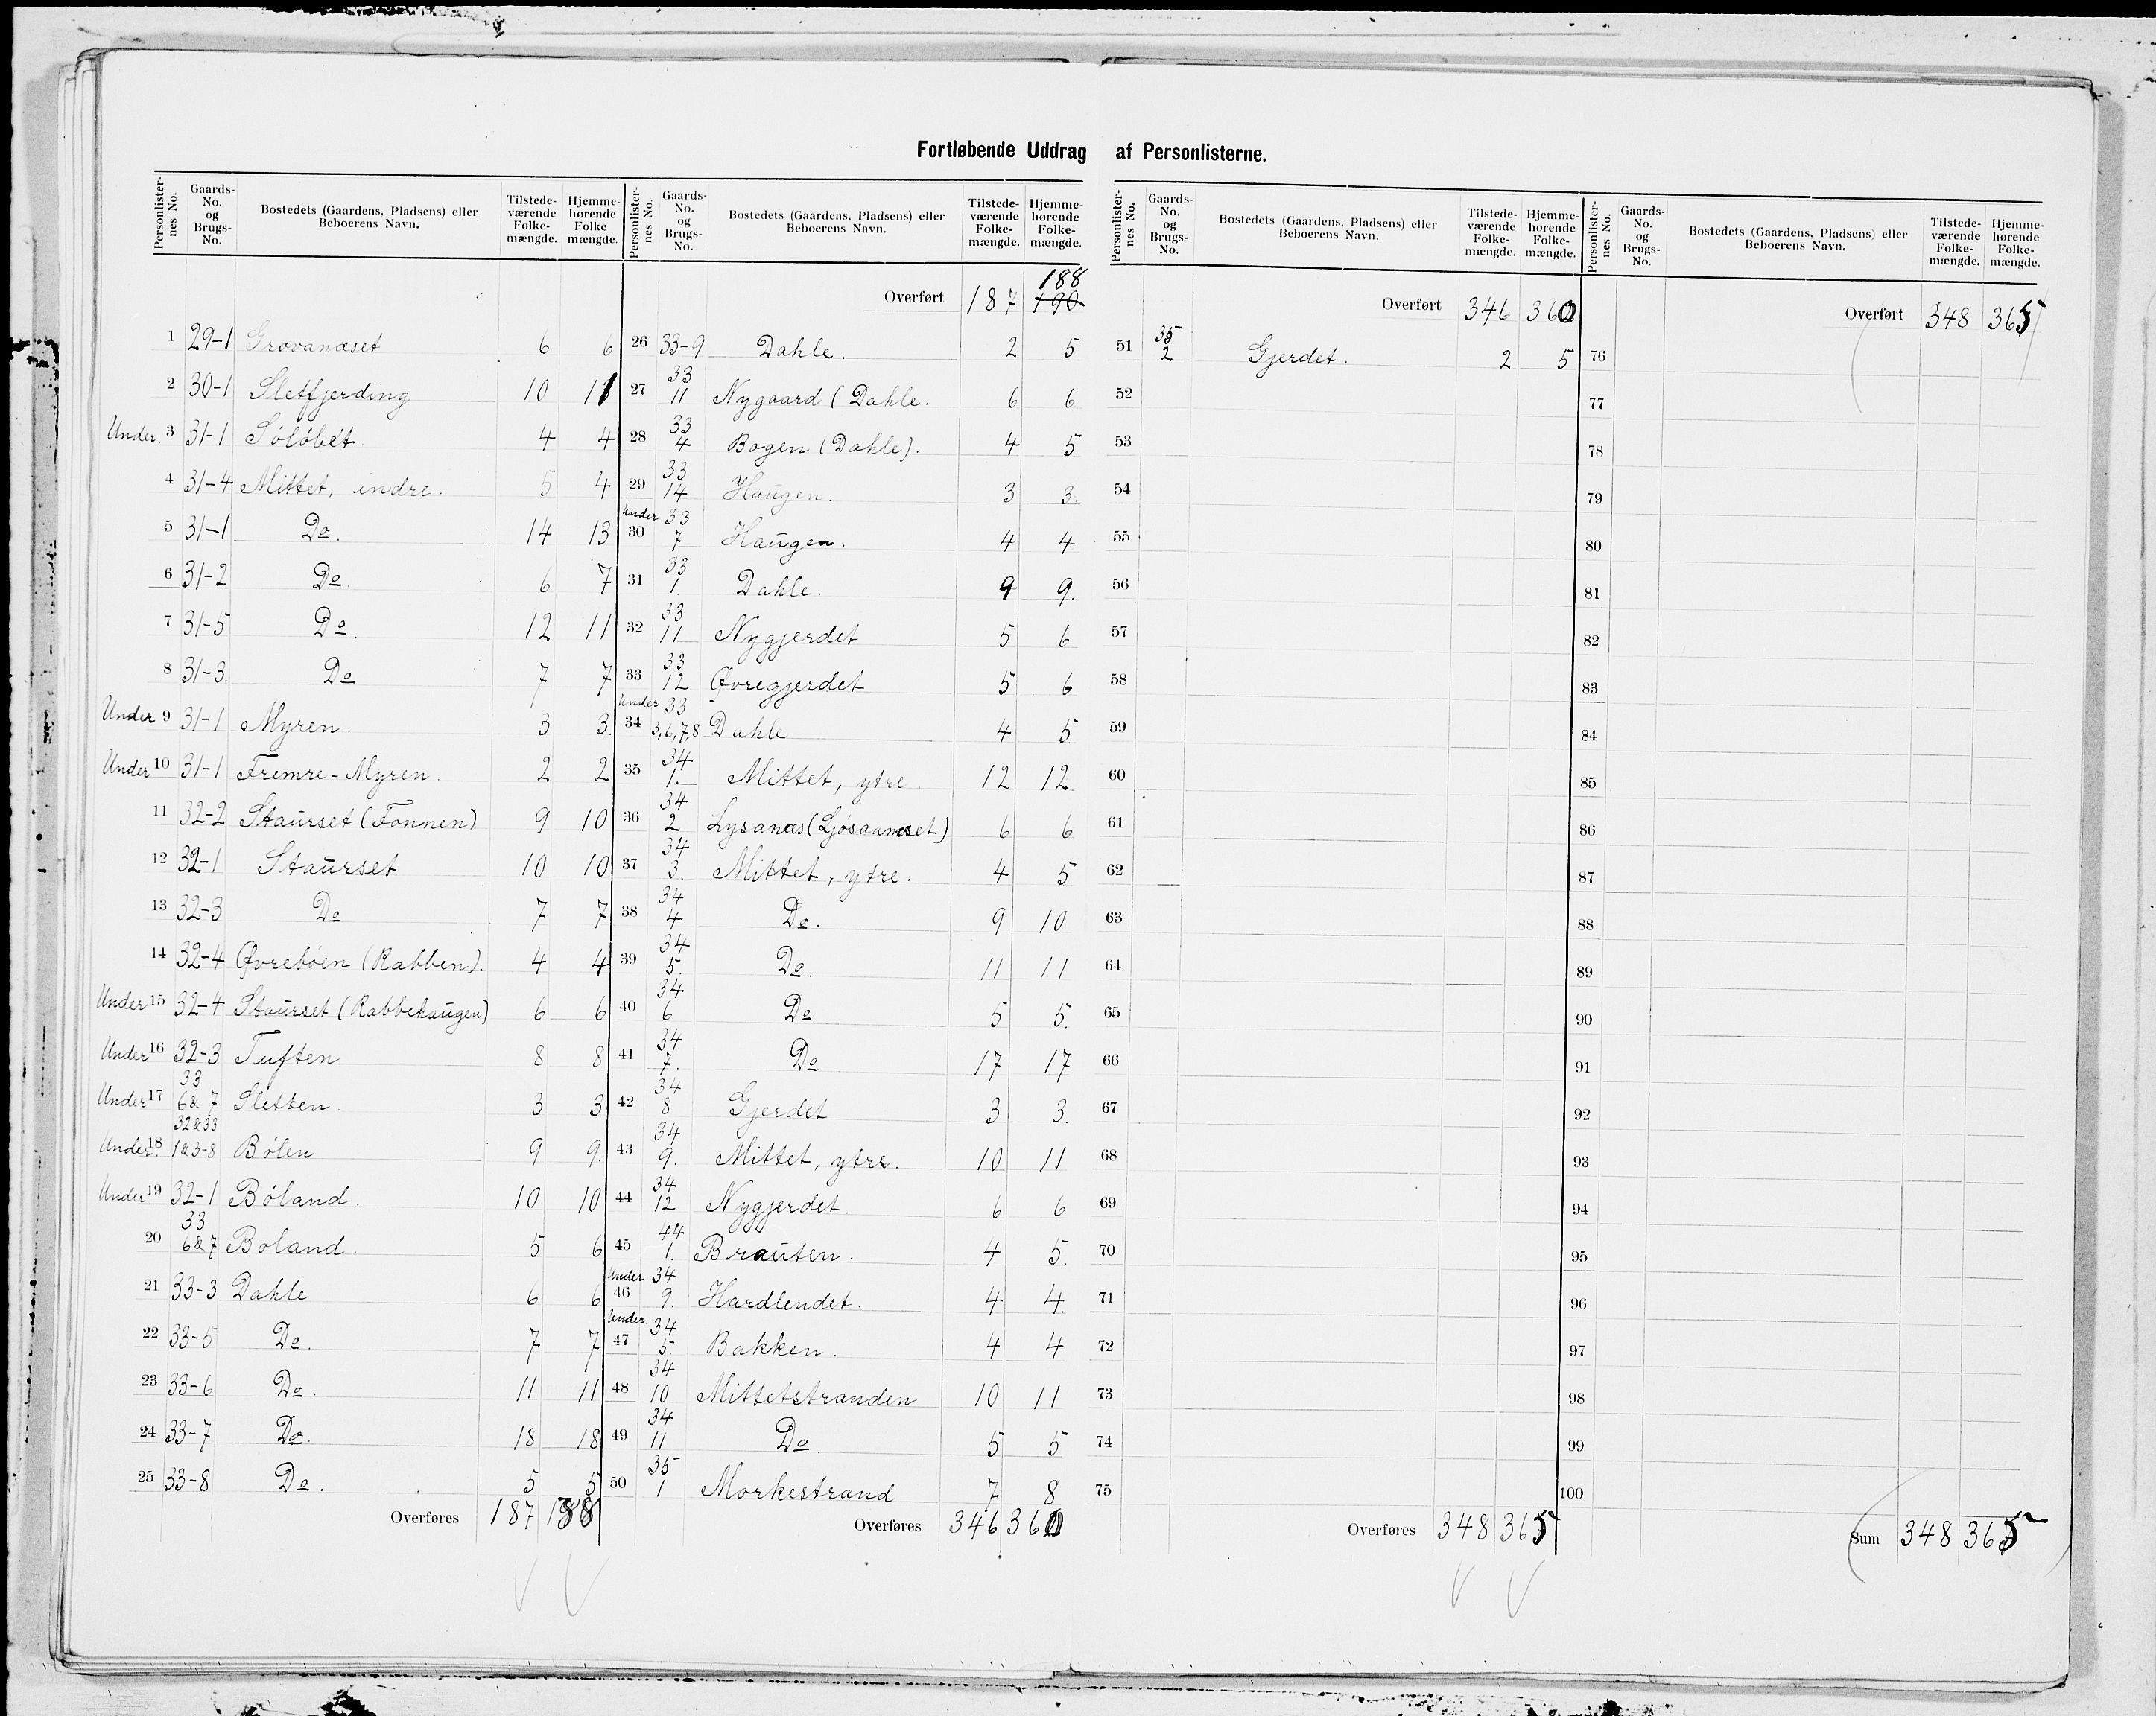 Fortløbende Uddrag af Personlisterne.
Personlisternes No. | Gaards-No. og Brugs-No. | Bostedets (Gaardens, Pladsens) eller Beboerens Navn. | Tilstedeværende Folkemængde. | Hjemmehørende Folkemængde.
1 29-1 Grovanæset 6 6
2 30-1 Sletfjerding 10 11
Under 3 31-1 Söløbet 4 4
4 31-4 Mittet, indre. 5 4
5 31-1 Do. 14 13
6 31-2 Do. 6 7
7 31-5 Do. 12 11
8 31-3. Do 7 7
Under 9 31-1 Myren. 3 3.
Under 10 31-1 Fremre-Myren. 2 2
11 32-2 Staurset (Fonnen) 9 10
12 32-1 Staurset 10 10
13 32-3 Do 7 7
14 32-4 Øvrebøen (Rabben). 4 4
Under 15 32-4 Staurset (Rabbehaugen) 6 6
Under 16 32-3 Tuften 8 8
Under 17 33 6&7 Sletten. 3 3
Under 18 32&33 1&3-8 Bölen 9 9.
Under 19 32-1 Böland. 10 10
20 33 6&7 Boland. 5 6
21 33-3 Dahle 6 6
22 33-5 Do. 7 7
23 33-6 Do. 11 11
24 33-7 Do. 18 18
25 33-8 Do. 5 5
Overføres 187 188
Personlisternes No. | Gaards-No. og Brugs-No. | Bostedets (Gaardens, Pladsens) eller Beboerens Navn. | Tilstedeværende Folkemængde. | Hjemmehørende Folkemængde.
188
Overført 187 190
26 33-9 Dahle. 2 5
27 33 11 Nygaard (Dahle. 6 6
28 33 4 Bogen (Dahle). 4 5
29 33 14 Haugen. 3 3.
Under 30 33 7 Haugen. 4 4
31 33 1. Dahle. 9 9.
32 33 11 Nygjerdet 5 6
33 33 12 Øvregjerdet 5 6
Under 34 33 3,6,7,8 Dahle 4 5
35 34 1. Mittet, ytre 12 12
36 34 2 Lysanæs (Ljösaanæset) 6 6
37 34 3. Mittet, ytre. 4 5
38 34 4 Do. 9 10
39 34 5. Do. 11 11
40 34 6 Do 5 5.
41 34 7. Do 17 17
42 34 8 Gjerdet 3 3.
43 34 9. Mittet, ytre. 10 11
44 34 12 Nygjerdet. 6 6
45 44 1. Brauten. 4 5.
Under 46 34 9. Hardlendet. 4 4.
Under 47 34 5. Bakken. 4 4
48 34 10 Mittetstranden 10 11
49 34 11 Do. 5 5
50 35 1 Morkestrand 7 8
Overføres 346 360
Personlisternes No. | Gaards-No. og Brugs-No. | Bostedets (Gaardens, Pladsens) eller Beboerens Navn. | Tilstedeværende Folkemængde. | Hjemmehørende Folkemængde.
Overført 346 360
51 35 2 Gjerdet. 2 5
52
53
54
55
56
57
58
59
60
61
62
63
64
65
66
67
68
69
70
71
72
73
74
75
Overføres 348 365
Personlisternes No. | Gaards-No. og Brugs-No. | Bostedets (Gaardens, Pladsens) eller Beboerens Navn. | Tilstedeværende Folkemængde. | Hjemmehørende Folkemængde.
Overført 348 365
76
77
78
79
80
81
82
83
84
85
86
87
88
89
90
91
92
93
94
95
96
97
98
99
100
Sum 348 365